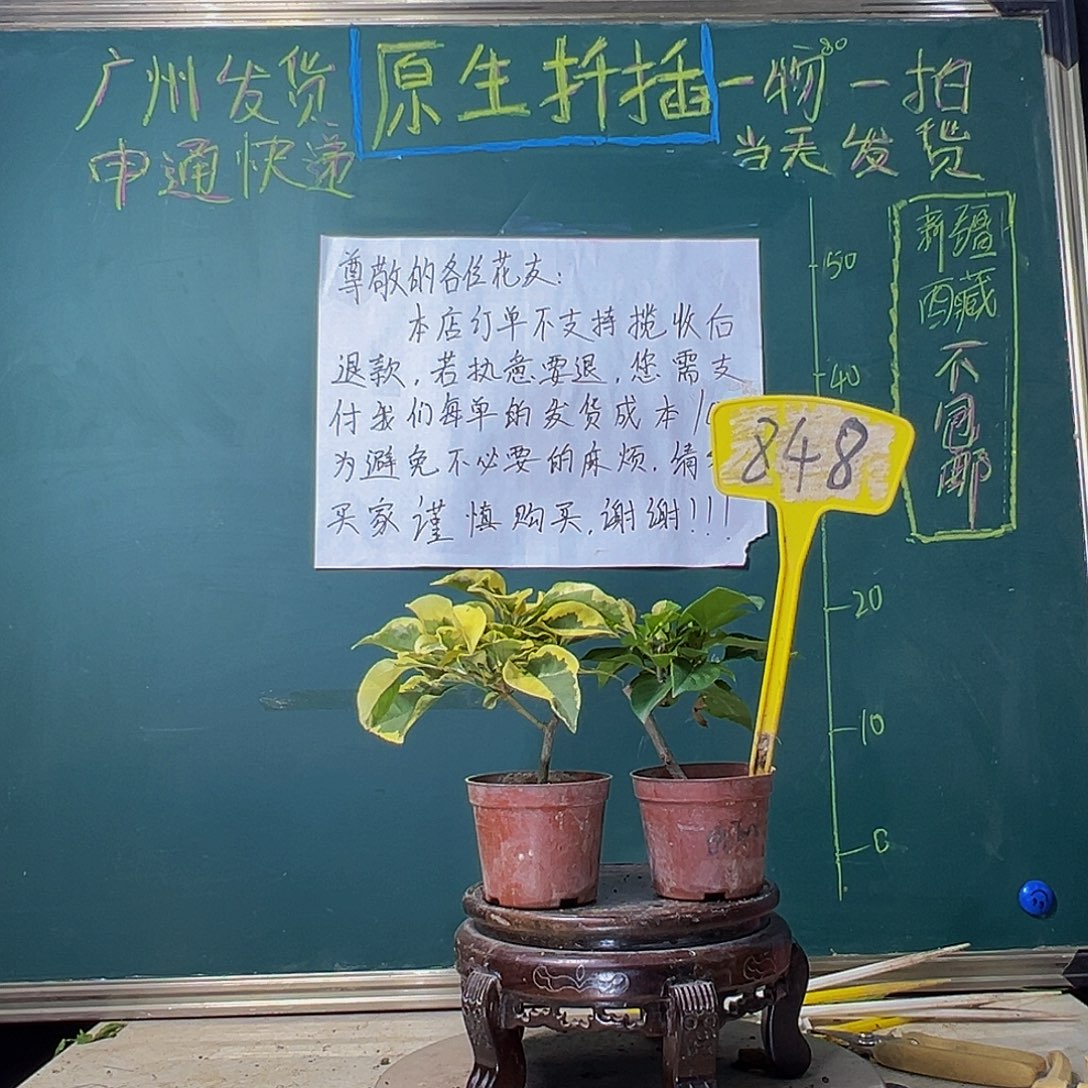 广州发货
原生扦插
一物一拍
80
申通快递
当天发货
新疆
西藏
不包邮
尊敬的各位花友:
本店订单不支持揽收后
退款,若执意要退,您需支
付我们每单的发货成本
为避免不必要的麻烦,请
买家谨慎购买,谢谢!!!
848
50
40
20
10
0